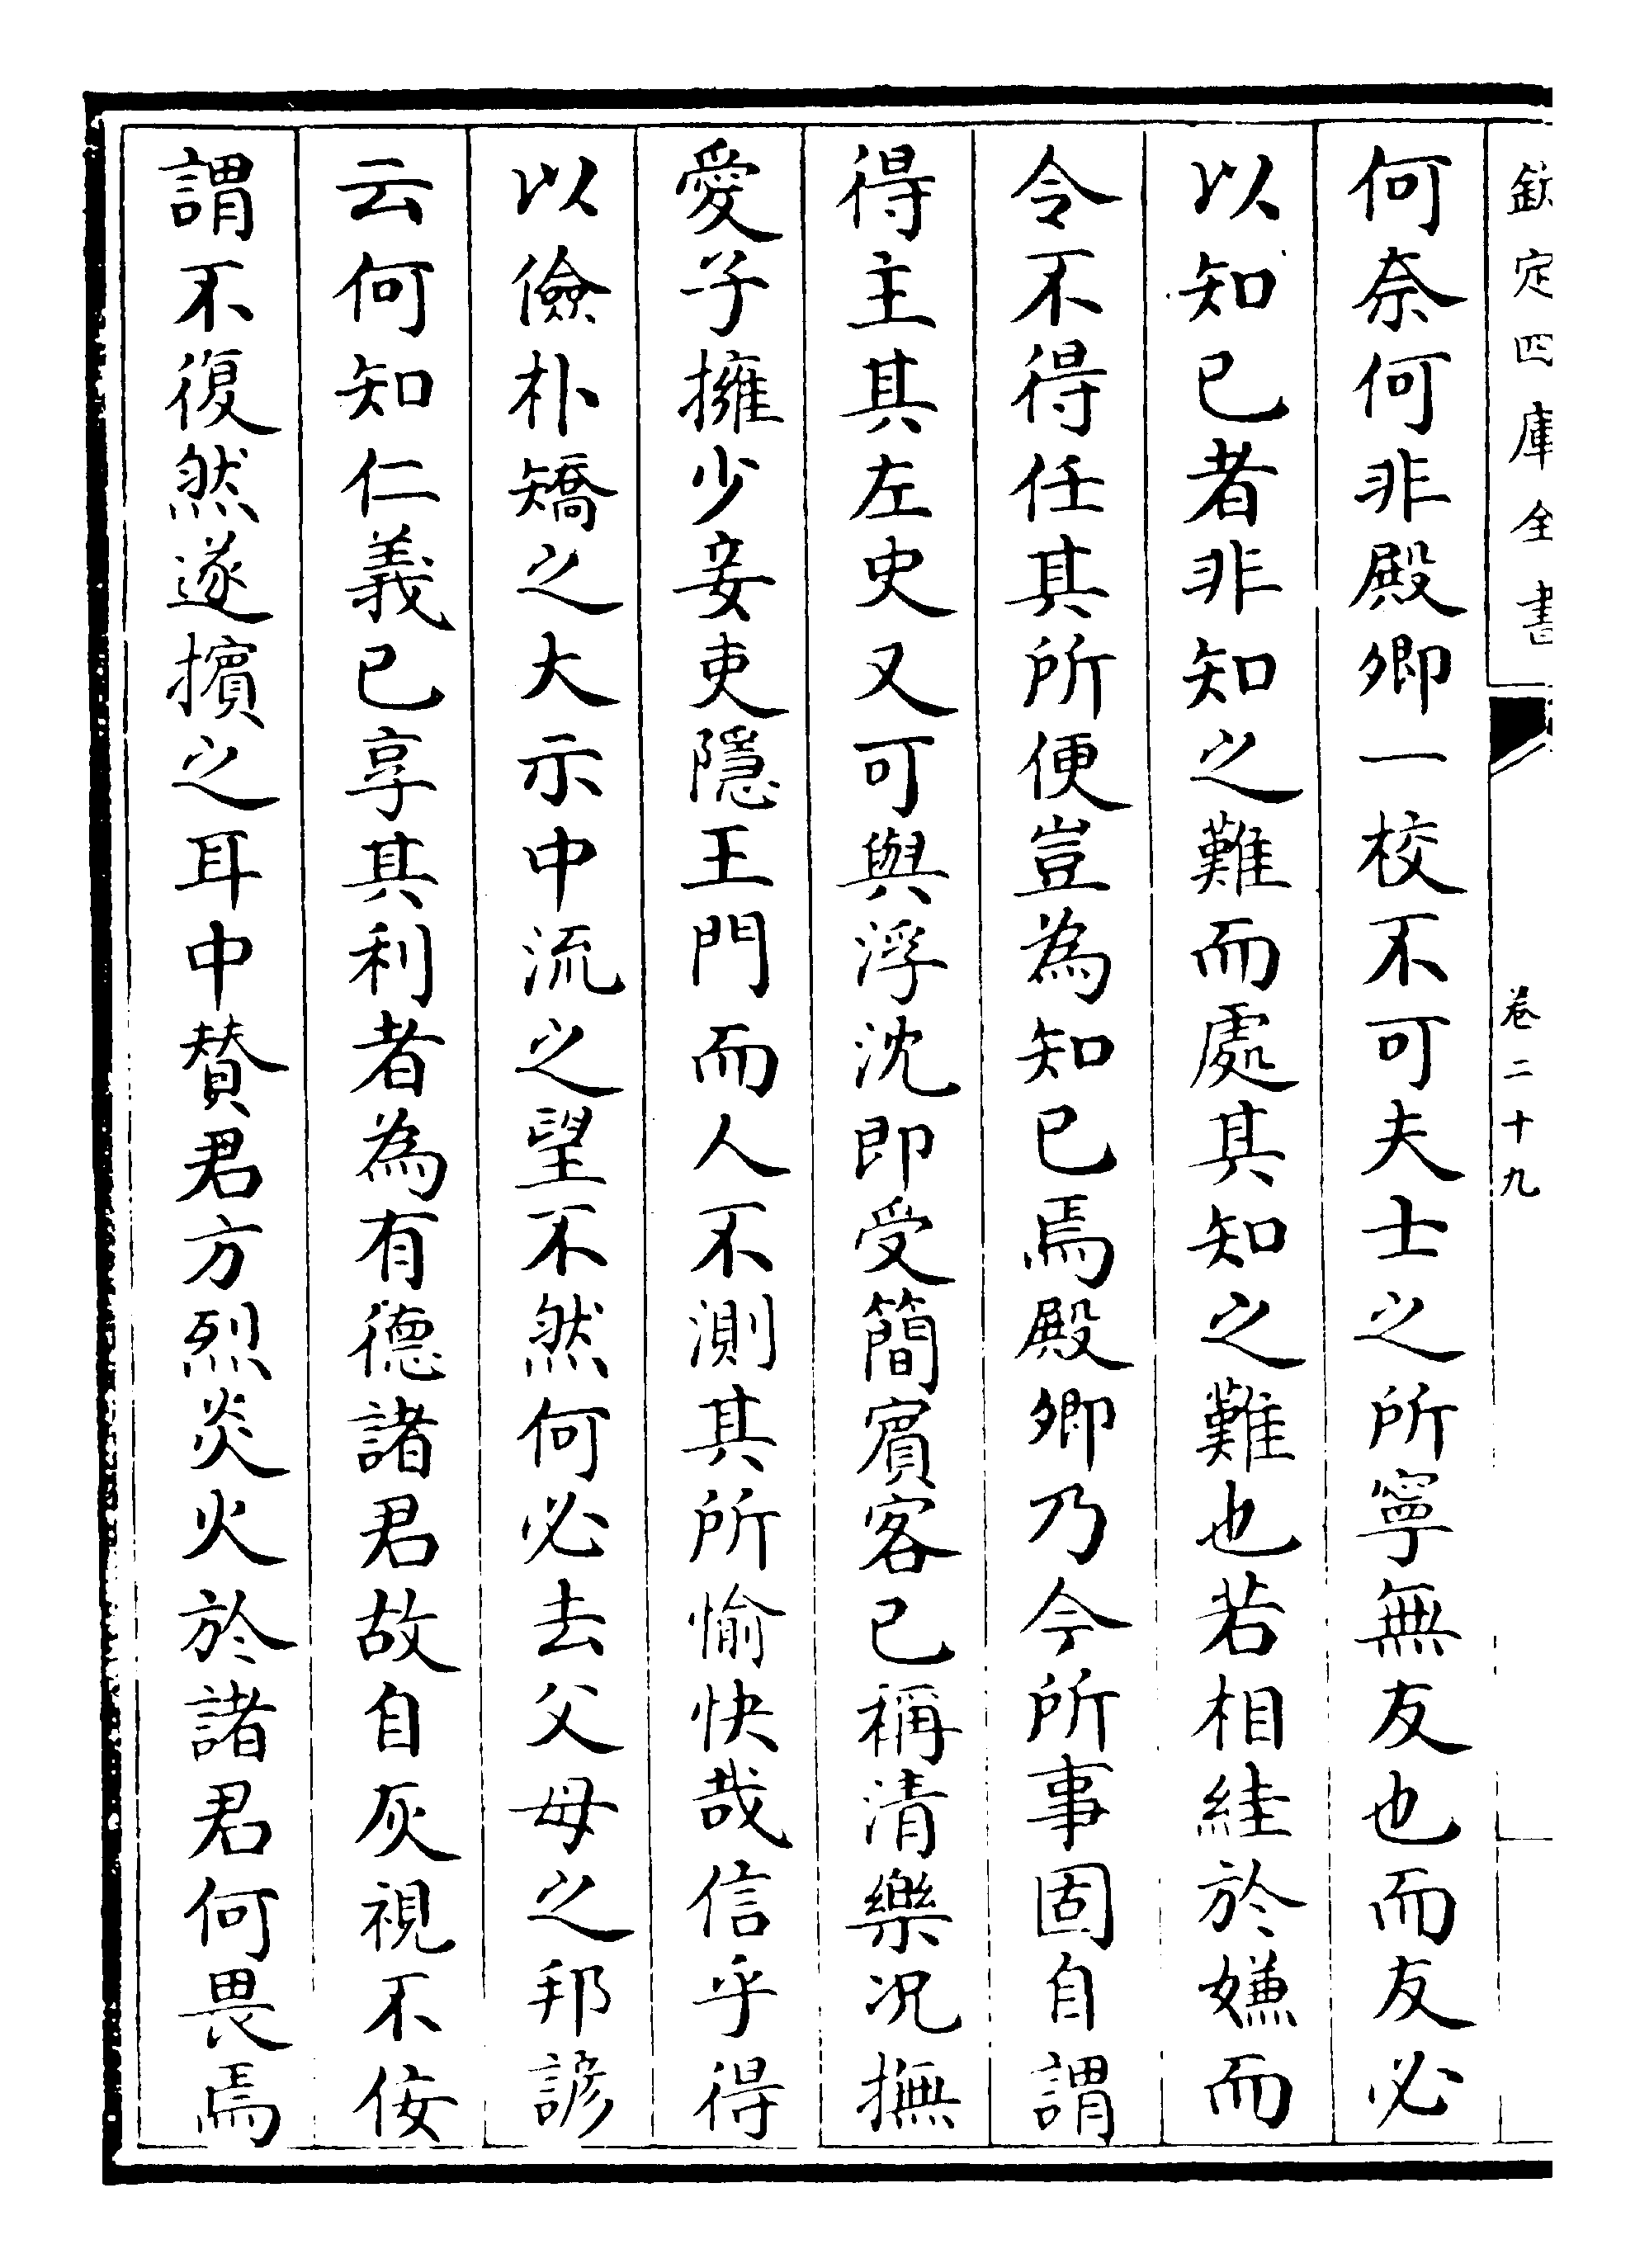 欽定四庫全書
卷二十九
何奈何非殿卿一校不可夫士之所寧無友也而友必
以知已者非知之難而處其知之難也若相絓於嫌而
令不得任其所便豈為知已焉殿卿乃今所事固自謂
得主其左史又可與浮沈即受簡賓客已稱清樂况撫
愛子擁少妾吏隱王門而人不測其所愉快哉信乎得
以儉朴矯之大示中流之望不然何必去父母之邦諺
云何知仁義已享其利者為有德諸君故自灰視不佞
謂不復然遂擯之耳中贊君方烈炎火於諸君何畏焉